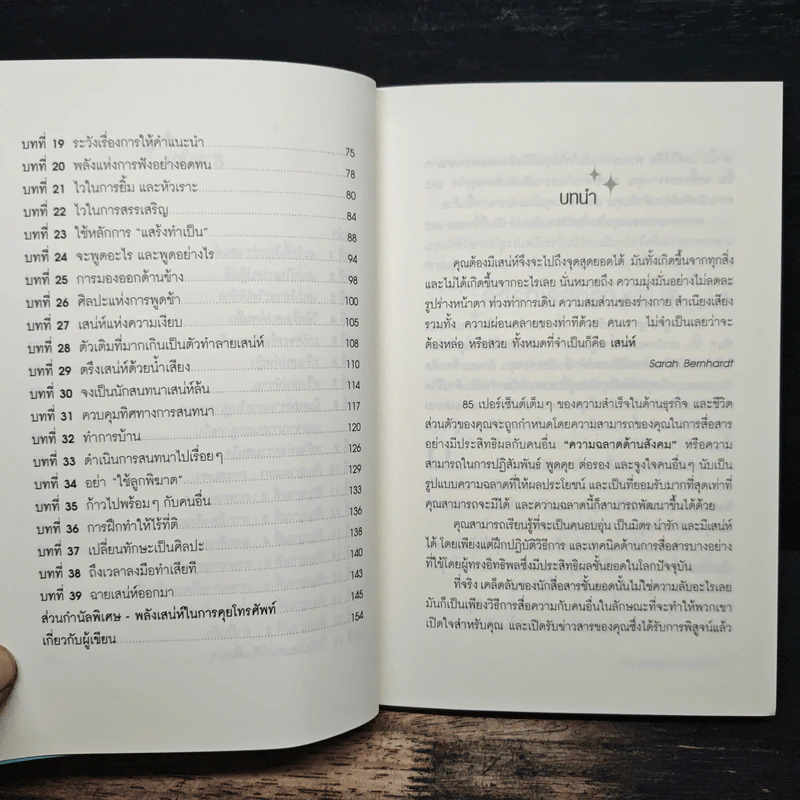 บทที่ 19 ระวังเรื่องการให้คำแนะนำ 75
บทที่ 20 พลังแห่งการฟังอย่างอดทน 78
บทที่ 21 ไวในการยิ้ม และหัวเราะ 80
บทที่ 22 ไวในการสรรเสริญ 84
บทที่ 23 ใช้หลักการ "แสร้งทำเป็น" 88
บทที่ 24 จะพูดอะไร และพูดอย่างไร 94
บทที่ 25 การมองออกด้านข้าง 98
บทที่ 26 ศิลปะแห่งการพูดช้า 100
บทที่ 27 เสน่ห์แห่งความเงียบ 105
บทที่ 28 ตัวเติมที่มากเกินเป็นตัวทำลายเสน่ห์ 108
บทที่ 29 ตรึงเสน่ห์ด้วยน้ำเสียง 110
บทที่ 30 จงเป็นนักสนทนาเสน่ห์ล้น 114
บทที่ 31 ควบคุมทิศทางการสนทนา 117
บทที่ 32 ทำการบ้าน 120
บทที่ 33 ดำเนินการสนทนาไปเรื่อยๆ 126
บทที่ 34 อย่า "ใช้ลูกพิฆาต" 129
บทที่ 35 ก้าวไปพร้อมๆ กับคนอื่น 133
บทที่ 36 การฝึกทำให้ไร้ที่ติ 136
บทที่ 37 เปลี่ยนทักษะเป็นศิลปะ 138
บทที่ 38 ถึงเวลาลงมือทำเสียที 140
บทที่ 39 ฉายเสน่ห์ออกมา 143
ส่วนกำนัลพิเศษ - พลังเสน่ห์ในการคุยโทรศัพท์ 145
เกี่ยวกับผู้เขียน 154
บทนำ
คุณต้องมีเสน่ห์จึงจะไปถึงจุดสุดยอดได้ มันทั้งเกิดขึ้นจากทุกสิ่ง
และไม่ได้เกิดขึ้นจากอะไรเลย นั่นหมายถึง ความมุ่งมั่นอย่างไม่ลดละ
รูปร่างหน้าตา ท่วงท่าการเดิน ความสมส่วนของร่างกาย สำเนียงเสียง
รวมทั้ง ความผ่อนคลายของท่าทีด้วย คนเรา ไม่จำเป็นเลยว่าจะ
ต้องหล่อ หรือสวย ทั้งหมดที่จำเป็นก็คือ เสน่ห์
Sarah Bernhardt
85 เปอร์เซ็นต์เต็มๆ ของความสำเร็จในด้านธุรกิจ และชีวิต
ส่วนตัวของคุณจะถูกกำหนดโดยความสามารถของคุณในการสื่อสาร
อย่างมีประสิทธิผลกับคนอื่น "ความฉลาดด้านสังคม" หรือความ
สามารถในการปฏิสัมพันธ์ พูดคุย ต่อรอง และจูงใจคนอื่นๆ นับเป็น
รูปแบบความฉลาดที่ให้ผลประโยชน์ และเป็นที่ยอมรับมากที่สุดเท่าที่
คุณสามารถจะมีได้ และความฉลาดนี้ก็สามารถพัฒนาขึ้นได้ด้วย
คุณสามารถเรียนรู้ที่จะเป็นคนอบอุ่น เป็นมิตร น่ารัก และมีเสน่ห์
ได้ โดยเพียงแต่ฝึกปฏิบัติวิธีการ และเทคนิคด้านการสื่อสารบางอย่าง
ที่ใช้โดยผู้ทรงอิทธิพลซึ่งมีประสิทธิผลขั้นยอดในโลกปัจจุบัน
ที่จริง เคล็ดลับของนักสื่อสารขั้นยอดนั้นไม่ใช่ความลับอะไรเลย
มันก็เป็นเพียงวิธีการสื่อความกับคนอื่นในลักษณะที่จะทำให้พวกเขา
เปิดใจสำหรับคุณ และเปิดรับข่าวสารของคุณซึ่งได้รับการพิสูจน์แล้ว